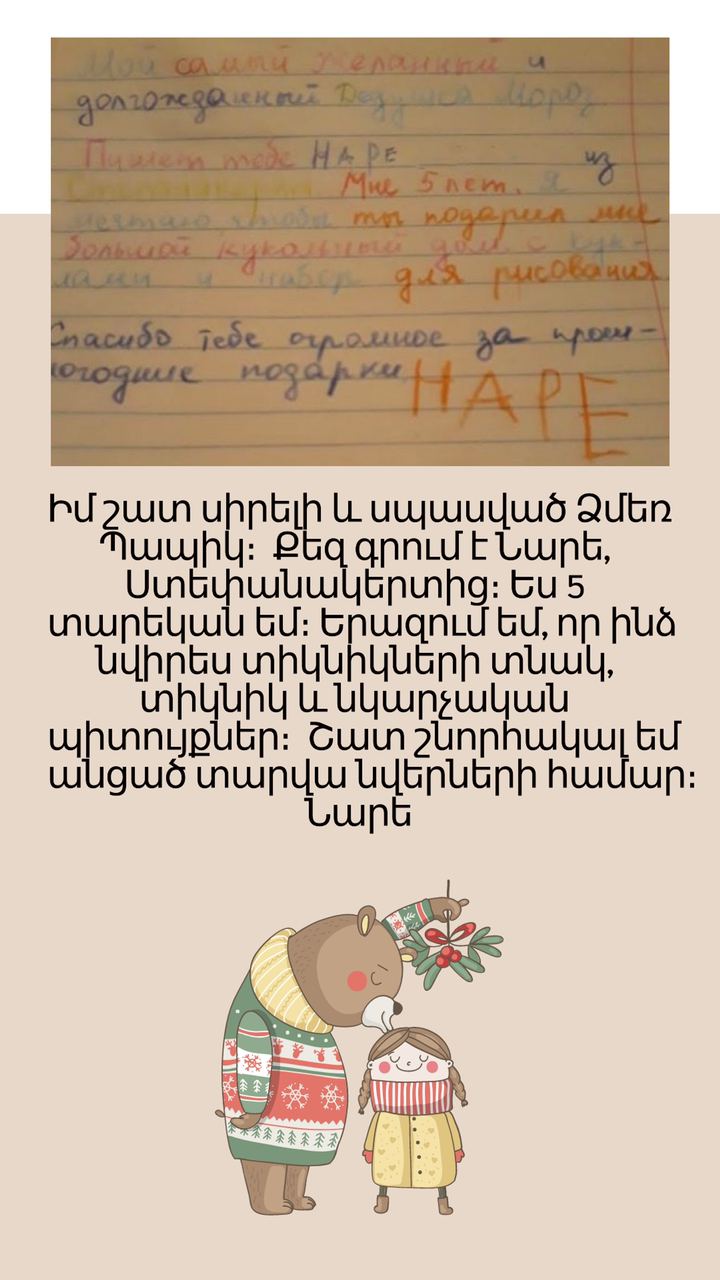 Мой самый желанный и
долгожданный Дедушка Мороз.
Пишет тебе НАРЕ из
Степанакерта. Мне 5 лет. Я
мечтаю чтобы ты подарил мне
большой кукольный дом с кук-
лами и набор для рисования
Спасибо тебе огромное за прош-
логодние подарки
НАРЕ
Իմ շատ սիրելի և սպասված Ձմեռ
Պապիկ։ Քեզ գրում է Նարե,
Ստեփանակերտից։ Ես 5
տարեկան եմ։ Երազում եմ, որ ինձ
նվիրես տիկնիկների տնակ,
տիկնիկ և նկարչական
պիտույքներ։ Շատ շնորհակալ եմ
անցած տարվա նվերների համար։
Նարե